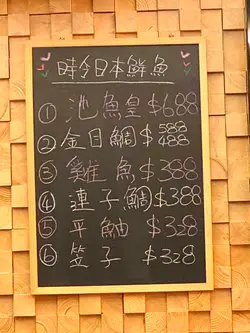 時令日本鮮魚
① 池魚皇 $688
② 金目鯛 $588
488
③ 雞魚 $388
④ 連子鯛 $388
⑤ 平鮋 $328
⑥ 笠子 $328